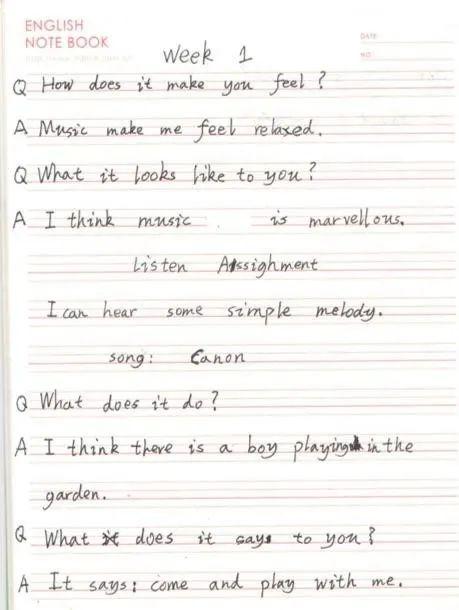 ENGLISH
NOTE BOOK
DATE
NO
Week 1
Q How does it make you feel?
A Music make me feel relaxed.
Q What it looks like to you?
A I think music is marvellous.
Listen Assighment
I can hear some simple melody.
song: Canon
Q What does it do?
A I think there is a boy playing in the
garden.
Q What does it says to you?
A It says: come and play with me.